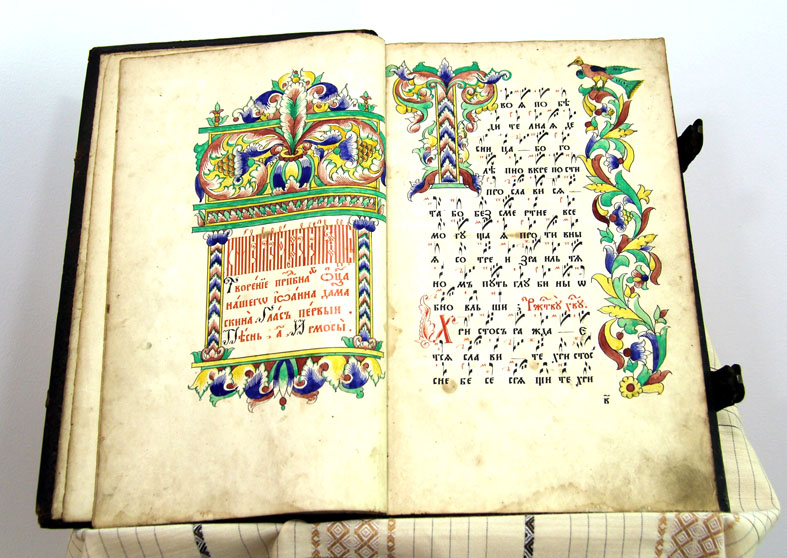 Творенїе прⷣпбна ѿца
нашегѡ їѡанна дама
скина Гласъ первыи .
Пѣснь . а҃ . Ирмосы .
Т воя побѣ
дителная де
сница — бого
лѣпно вкрепости
прослави ся
та бо безсмертне все
могущая противны
я сотре изралитя
номъ путь глубины ѡ
бновльши : Ржⷭтву хв҃у :
Христос ражда — е
тся слави — те христос
снебесе срящите хри
в҃